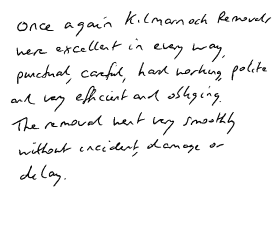 Once again Kilmarnock Removals
were excellent in every way,
punctual, careful, hard working, polite
and very efficient and obliging.
The removal went very smoothly
without incident, damage or
delay.